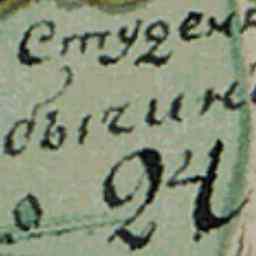 Студен
бычин
24